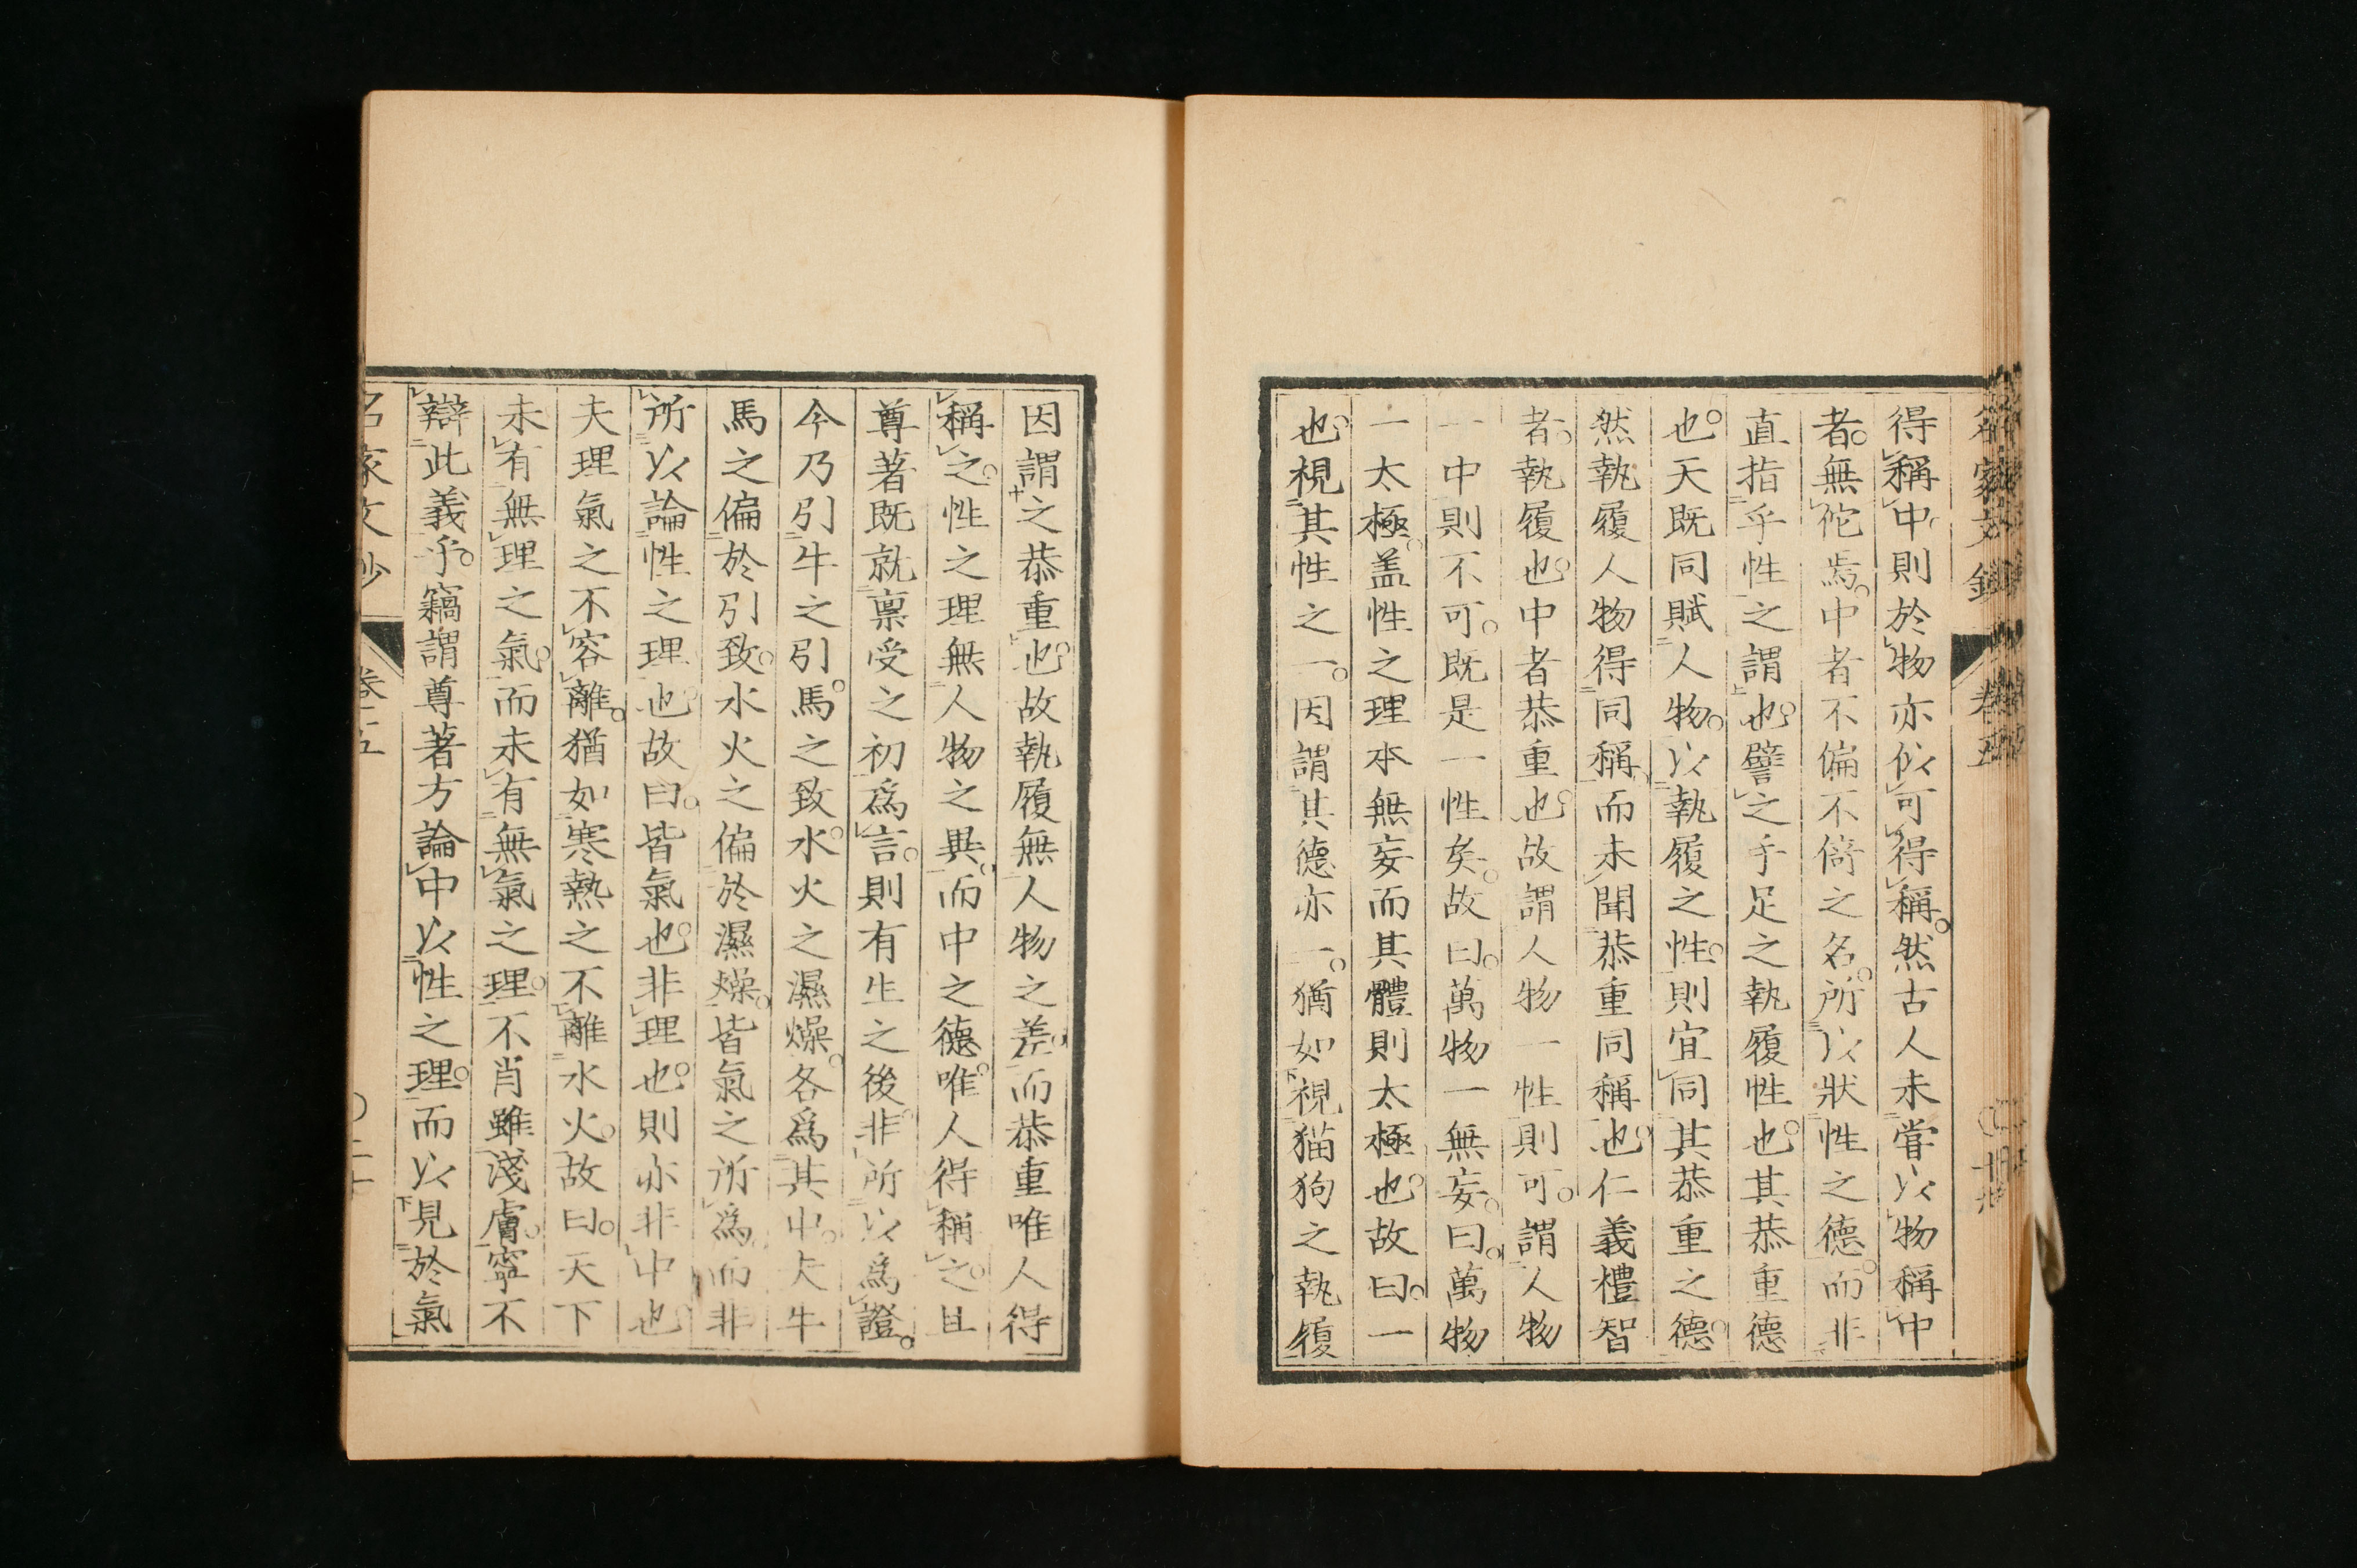 得稱中則於物亦似可得稱。然古人未嘗以物稱中
者。無佗焉。中者不偏不倚之名。所以狀性之德。而非
直指乎性之謂也。譬之手足之執履性也。其恭重德
也。天既同賦人物。以執履之性。則宜同其恭重之德。
然執履人物得同稱。而未聞恭重同稱也。仁義禮智
者。執履也。中者恭重也。故謂人物一性則可。謂人物
一中則不可。既是一性矣。故曰。萬物一無妄。曰。萬物
一太極。盖性之理本無妄而其體則太極也。故曰。一
也。視其性之一。因謂其德亦一。猶如視猫狗之執履
因謂之恭重也。故執履無人物之差。而恭重唯人得
稱之。性之理無人物之異。而中之德。唯人得稱之。且
尊著既就禀受之初爲言。則有生之後。非所以爲證。
今乃引牛之引馬。之致水。火之濕燥。各爲其中。夫牛
馬之偏於引致。水火之偏於濕燥。皆氣之所爲。而非
所以論性之理也。故曰。皆氣也。非理也。則亦非中也。
夫理氣之不容離。猶如寒熱之不離水火。故曰。天下
未有無理之氣。而未有無氣之理。不肖雖淺膚。寧不
辯此義乎。竊謂尊著方論中以性之理。而以見於氣
名家文抄
卷五